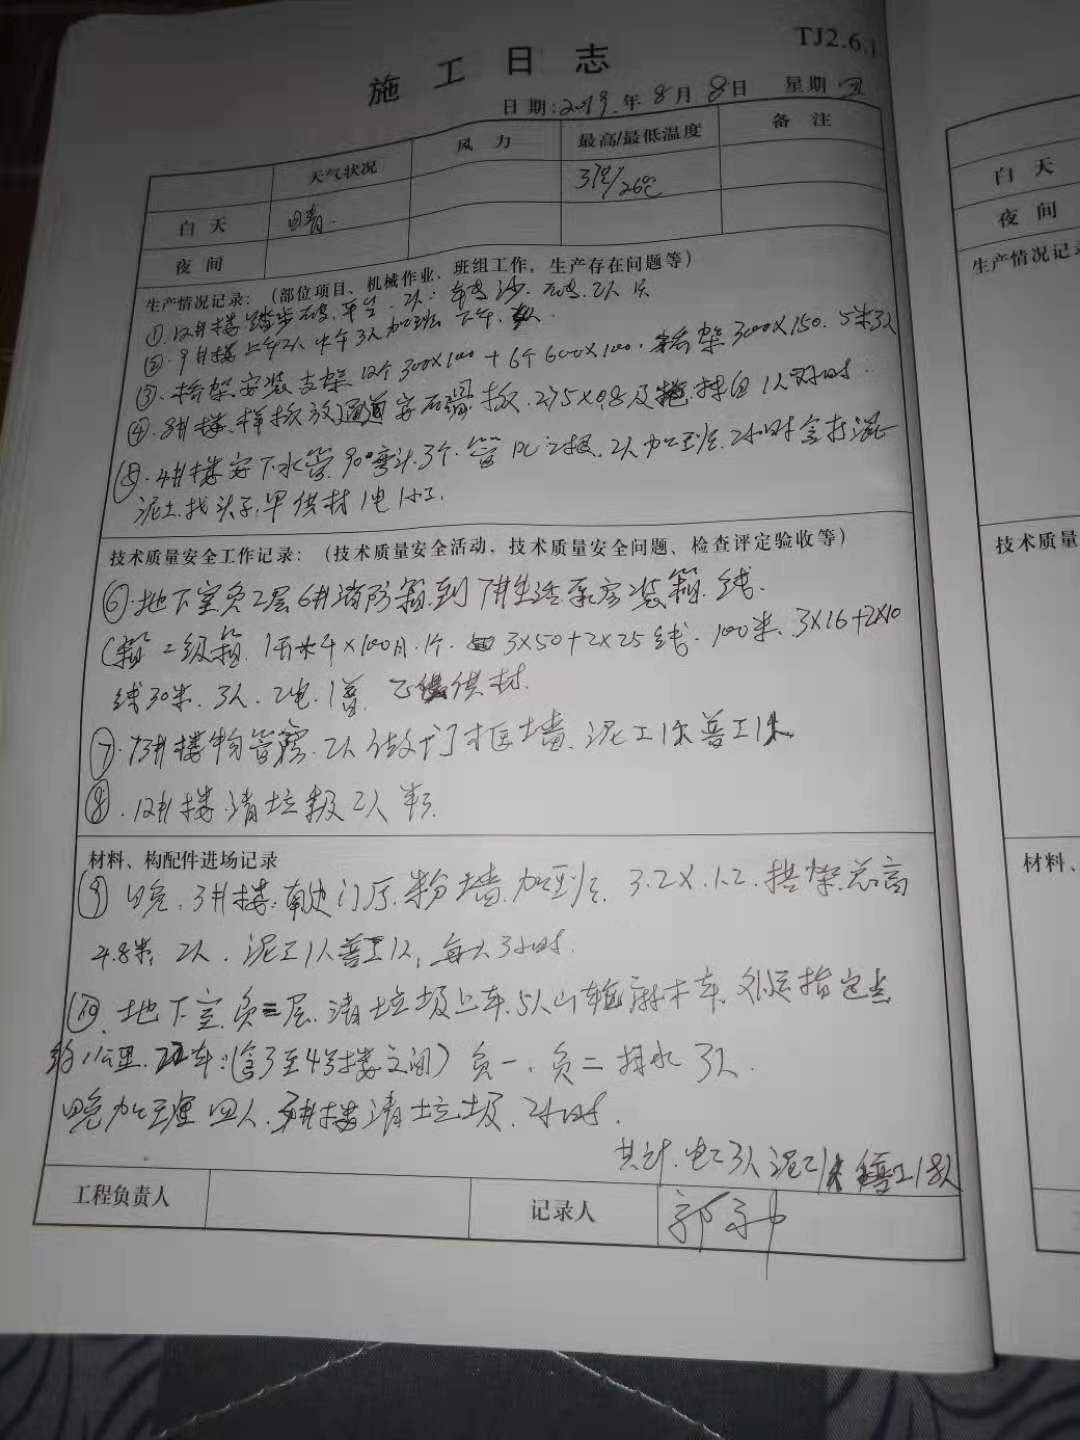 TJ2.6.1
施工日志
日期:2019.年8月8日 星期四
天气状况 风力 最高/最低温度 备注
白天 晴. 37℃/26℃
夜间
生产情况记录:(部位项目、机械作业、班组工作,生产存在问题等)
①.12#楼踏步 2人. 2人
②.9#楼上午2人中午3人加班下午
③.桥架安装支架12个300X100+6个600X100.桥架300X150.5米3人
④.8#楼.样板放通道安石膏板.2.75X0.8及 1人 小时.
⑤.4#楼安下水管.90°弯头.3个.管 2人加班.2小时含打混
泥土.找头子.甲供材1电1小工.
技术质量安全工作记录:(技术质量安全活动,技术质量安全问题、检查评定验收等)
⑥.地下室负2层6#消防箱到7#生活泵房装箱.线.
(箱二级箱. 1个. 3X50+2X25线.100米.3X16+2X10
线30米.3人.2电.1普.乙供材.
⑦.13#楼物管房.2人做门框墙.泥工1人普工1人
⑧.12#楼.清垃圾2人
材料、构配件进场记录
⑨晚.3#楼.南边门厅.粉墙.加班.3.2X.1.2.拱架总高
4.8米,2人.泥工1人普工1人,每人3小时.
⑩.地下室.负三层.清垃圾上车.5人 车.外运指定点
约1公里.22车:(含3至4号楼之间)负一.负二排水3人.
晚加班四人. #楼清垃圾.2小时.
共计.电工3人泥工 人普工18人
工程负责人 记录人 郭
白天
夜间
生产情况记
技术质量
材料、